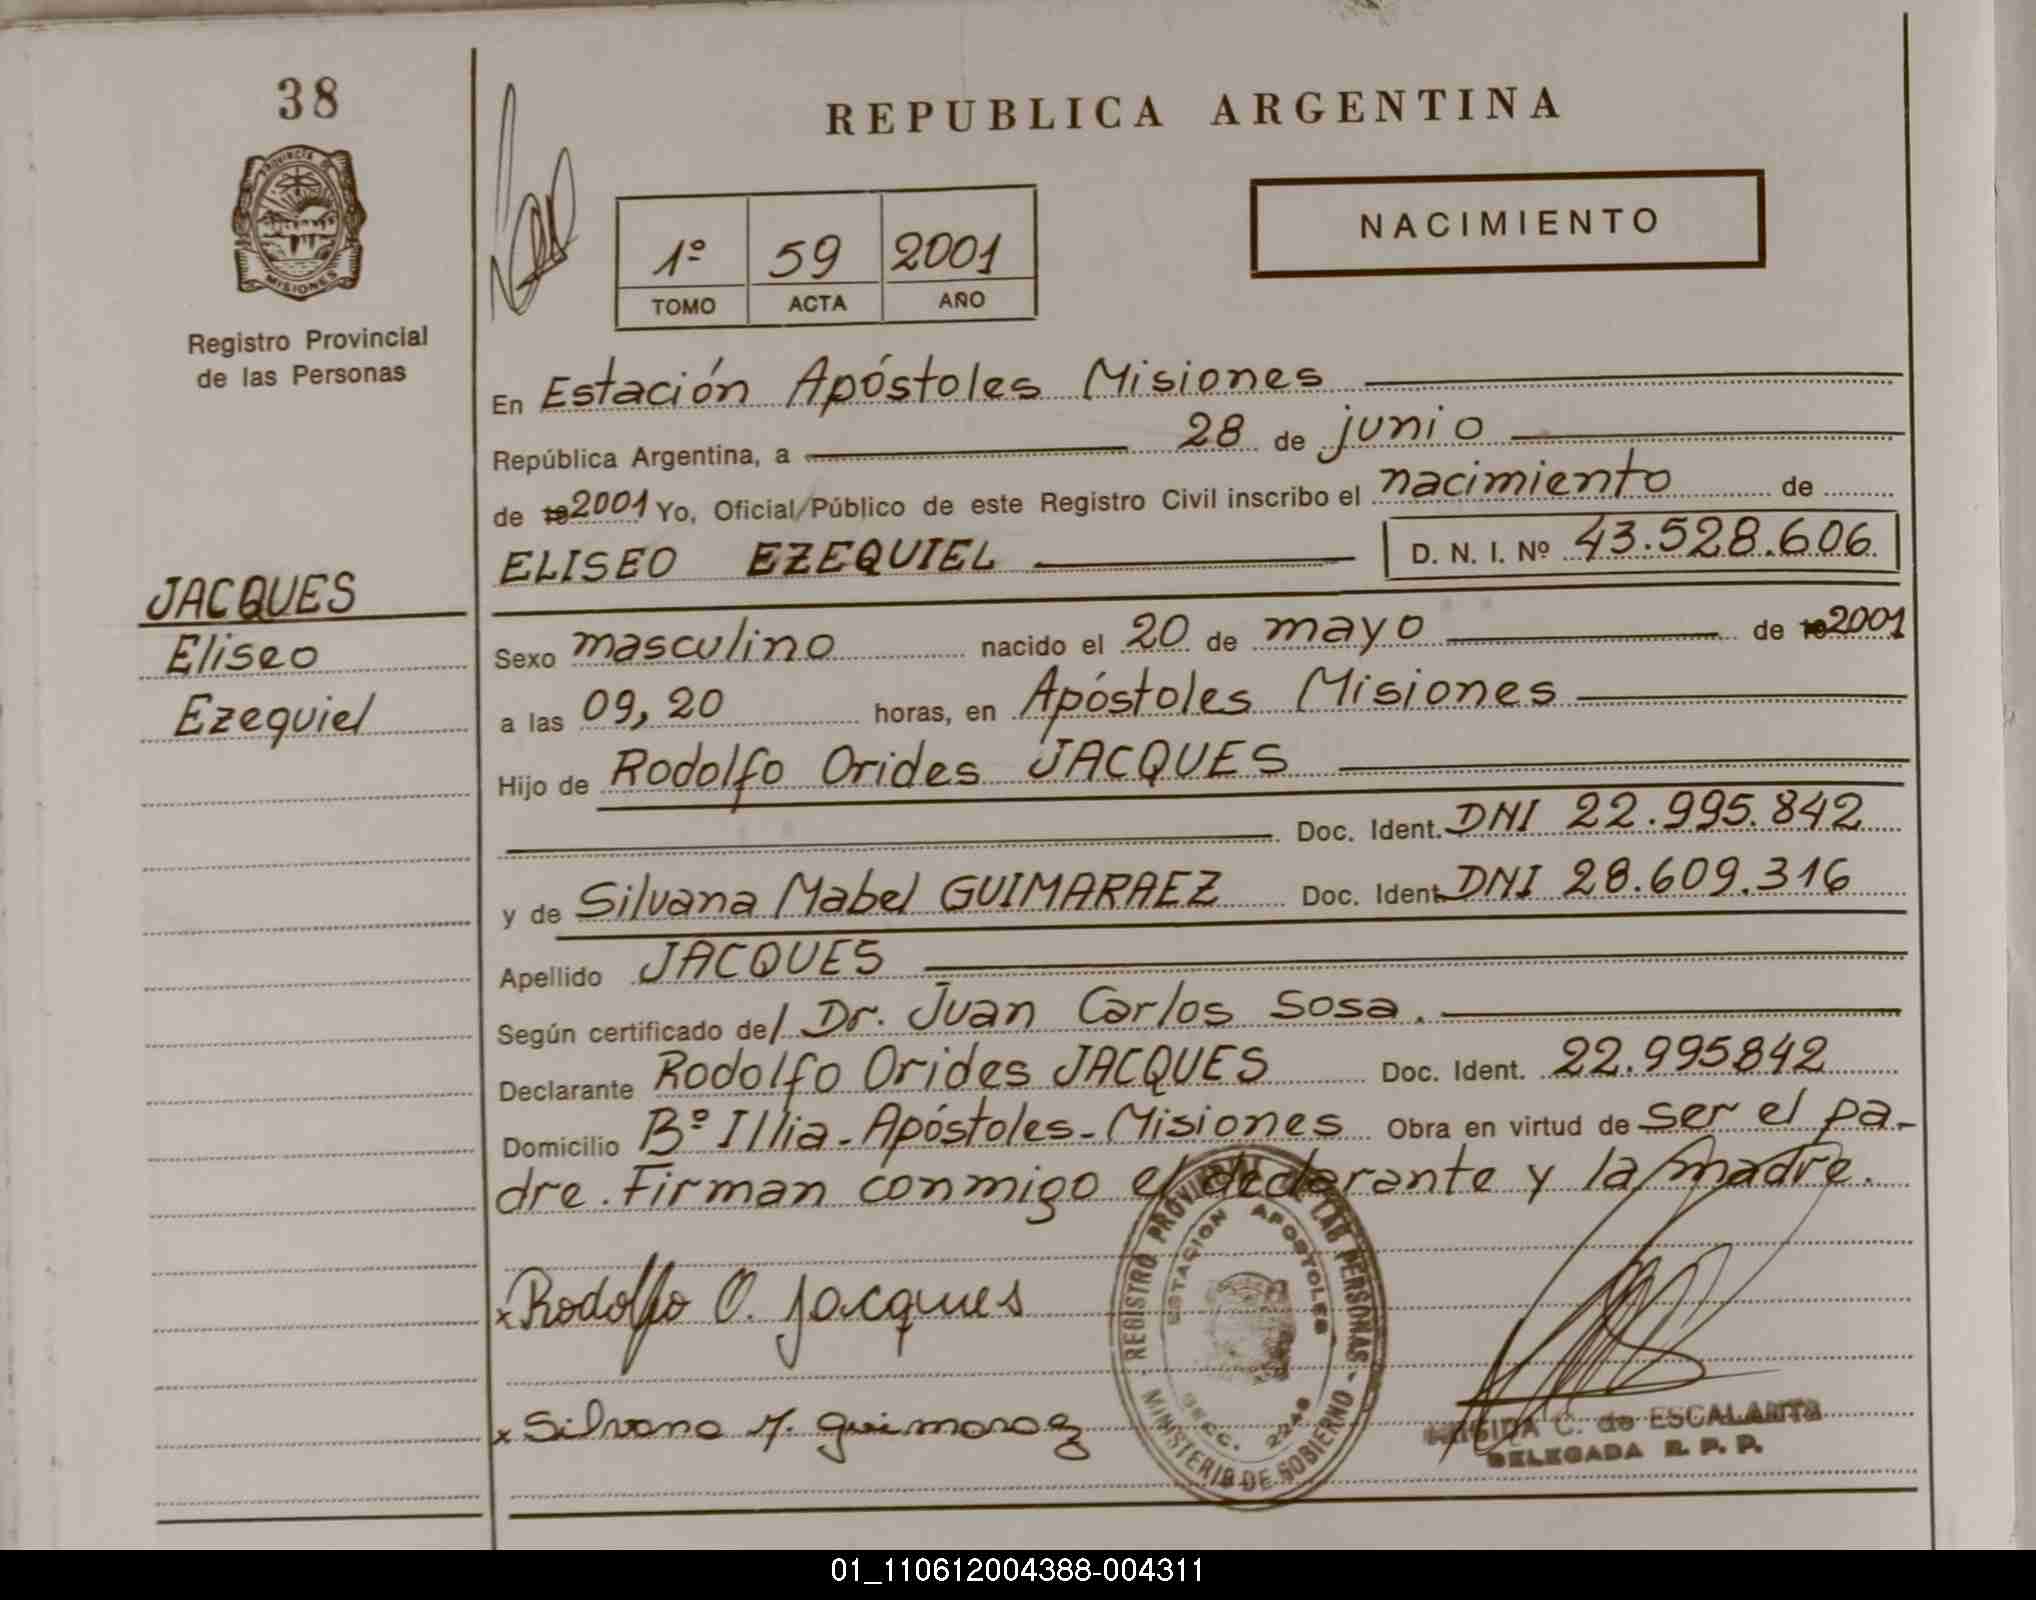 38
PROVINCIA DE
MISIONES
Registro Provincial
de las Personas
JACQUES
Eliseo
Ezequiel
REPUBLICA ARGENTINA
NACIMIENTO
1º 59 2001
TOMO ACTA AÑO
En Estación Apóstoles Misiones
República Argentina, a 28 de junio
de 19 2001 Yo, Oficial Público de este Registro Civil inscribo el nacimiento de
ELISEO EZEQUIEL D. N. I. Nº 43.528.606
Sexo masculino nacido el 20 de mayo de 19 2001
a las 09,20 horas, en Apóstoles Misiones
Hijo de Rodolfo Orides JACQUES
Doc. Ident. DNI 22.995.842
y de Silvana Mabel GUIMARAEZ Doc. Ident. DNI 28.609.316
Apellido JACQUES
Según certificado de/ Dr. Juan Carlos Sosa.
Declarante Rodolfo Orides JACQUES Doc. Ident. 22.995842
Domicilio Bº Illia - Apóstoles - Misiones Obra en virtud de ser el pa-
dre. Firman conmigo el declarante y la madre.
x Rodolfo O. Jacques
x Silvana M. Guimaraez
REGISTRO PROVINCIAL DE LAS PERSONAS
ESTACION APOSTOLES
SECC. 2248
MINISTERIO DE GOBIERNO
C. de ESCALANTE
DELEGADA R. P. P.
01_110612004388-004311